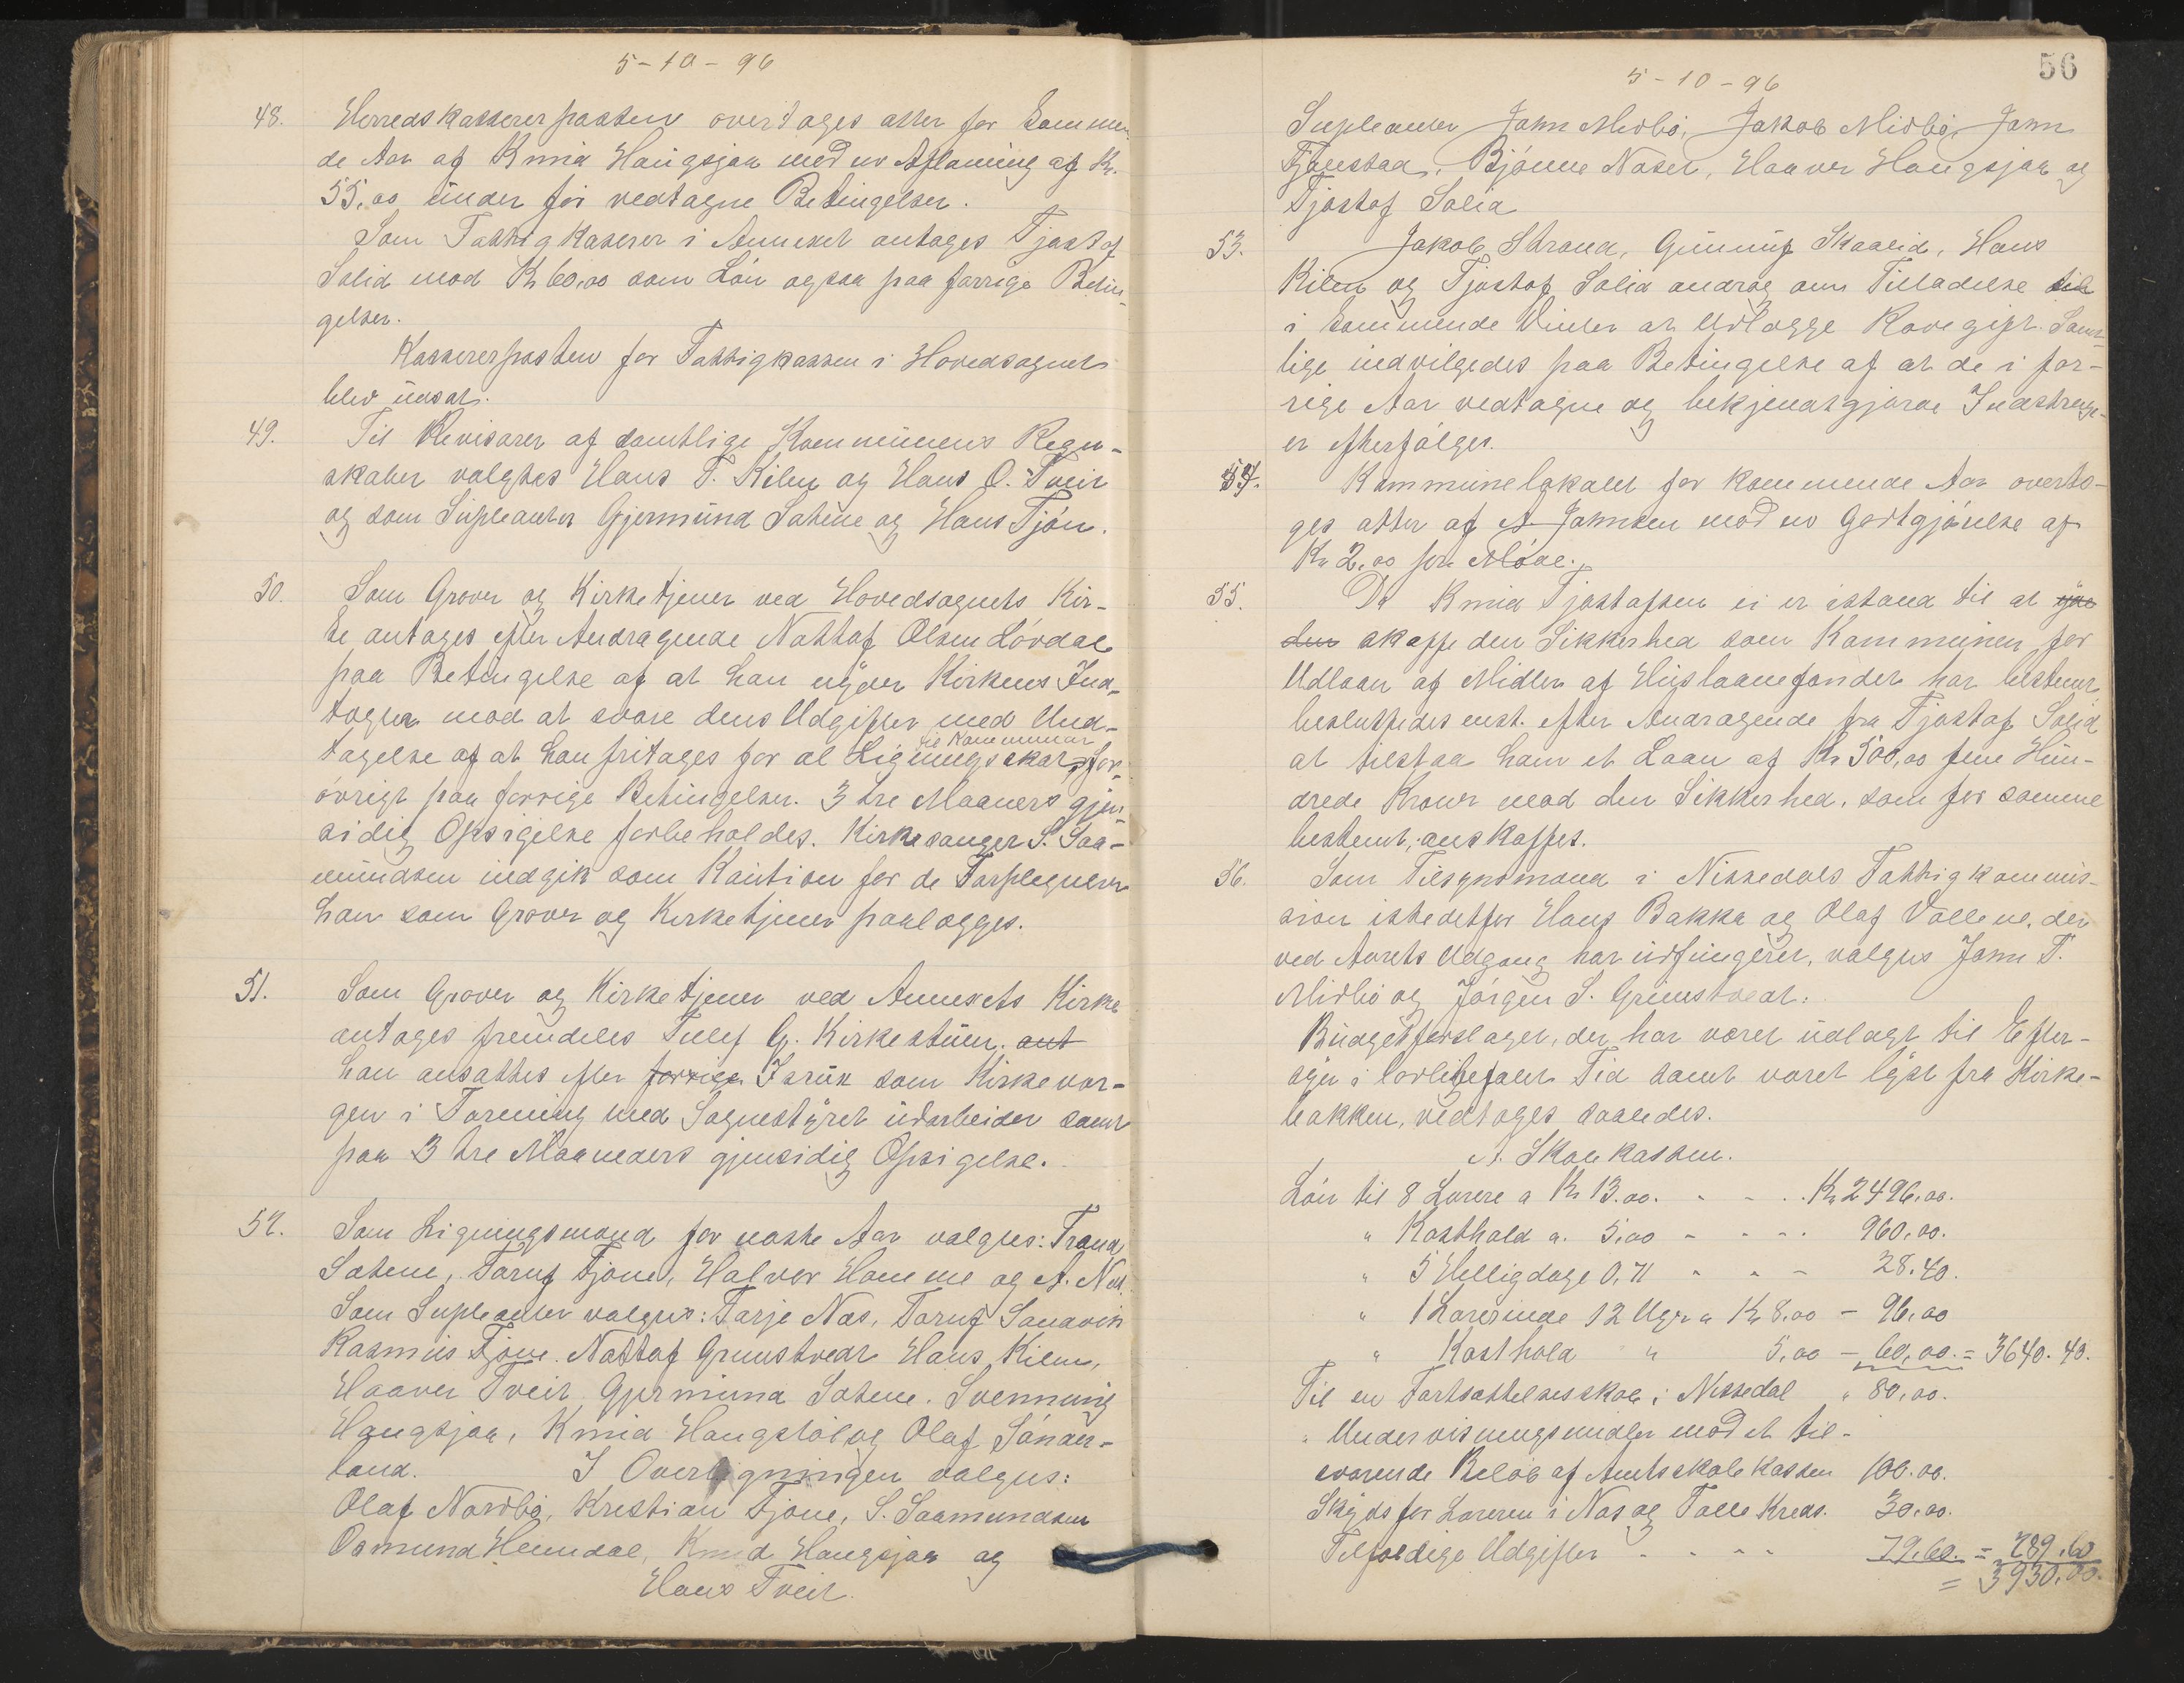 5-10-96
48. Herredskassererposten overtages atter for kommen
de Aar af Knud Haugsjaa mod en Aflønning af Kr.
55,00 under før vedtagne Betingelser.
Som Fattigkaserer i Annexet antages Tjostof
Solid mod Kr 60,00 som Løn ogsaa paa forrige Betin-
gelser.
Kassererposten for Fattigkassen i Hovedsognet
blev udsat.
49. Til Revisorer af samtlige Kommunens Regn-
skaber valgtes Hans T. Kilen og Hans O. Tveit
og som Supleanter Gjermund Satene og Hans Tjøn.
50. Som Graver og Kirketjener ved Hovedsognets Kir-
ke antages efter Andragende Nottof Olsen Løvdal
paa Betingelse af at han nyder Kirkens Ind-
tægter mod at svare dens Udgifter med Und-
til Kommunen
tagelse af at han fritages for al Ligningsskat, for-
øvrigt paa forrige Betingelser. 3 tre Maaners gjen-
sidig Opsigelse forbeholdes. Kirkesanger S. Saa-
mundsen indgik som Kaution for de Forpleg­telser
han som Graver og Kirketjener paalægges.
51. Som Graver og Kirketjener ved Annexets Kirke
antages fremdeles Tellef G. Kirkestuen. ant
han ansattes efter forrige Instrux som Kirkevær-
gen i Forening med Sognestyret udarbeider samt
paa 3 tre Maaneders gjensidig Opsigelse.
52. Som Ligningsmænd for næste Aar valgtes: Trond
Satene, Toruf Tjone, Halvor Homme og A. Næs.
Som Supleanter valgtes: Tarje Næs, Toruf Sandvik
Rasmus Tjone. Nottof Grimstvedt Hans Kilen,
Haaver Tveit Gjermund Satene. Svennung
Haugsjaa, Knud Haugstøl og Olaf Sønder-
land. I Overligningen valgtes:
Olaf Nordbø, Kristian Tjone, S. Saamundsen
Osmund Heimdal, Knud Haugsjaa og
Hans Tveit.
56
5-10-96
Supleanter John Midbø, Jakob Midbø, John
Tjønstaa, Bjønne Naset, Haaver Haugsjaa og
Tjostof Solid
53. Jakob Strand, Gunnuf Skaalid, Hans
Kilen og Tjostof Solid androg om Tilladelse til
i kommende Vinter at Udlægge Rovegift. Samt-
lige indvilgedes paa Betingelse af at de i for-
rige Aar vedtagne og bekjendtgjorde Indstrenge-
er efterfølges.
54. Kommunelokalet for kommende Aar overta-
ges atter af A Johnsen mod en Godtgjørelse af
Kr 2,00 pr. Møde.
55. Da Knud Tjostofsen ei er istand til at
den skaffe den Sikkerhed som Kommunen for
Udlaan af Midler af Huslaanefondet har bestemt
besluttedes enst. efter Andragende fra Tjostof Solid
at tilstaa ham et Laan af Kr 500,00 fem Hun-
drede Kroner mod den Sikkerhed, som for samme
bestemt, anskaffes.
56. Som Tilsynsmænd i Nissedals Fattigkommis-
sion istedetfor Hans Bakka og Olaf Valleve, der
ved Aarets Udgang har udfungeret, valgtes John T.
Midbø og Jørgen S. Grimstvedt.
Budgetforslaget, der har været udlagt til Efter-
syn i lovbefalet Tid samt været lyst fra Kirke-
bakken, vedtoges saaledes.
A. Skolekassen.
Løn til 8 Lærere a Kr 13.00. - - - Kr 2496,00.
" Kosthold a. 5,00 - - - - 960,00.
" 5 Helligdage 0,71 - - - 28.40.
" 1 Lærerinde 12 Uger a Kr 8,00 - 96,00
" Kosthold " 5,00 - 60,00. = 3640.40.
Til en Fortsættelsesskole i Nissedal " 80,00.
" Undervisningsmidler mod et til-
svarende Beløb af Amtsskolekassen 100.00.
Skyds for Læreren i Næs og Fælle Kreds. 30.00.
Tilfældige Udgifter - - - - 79.60. = 289.60
= 3930,00.